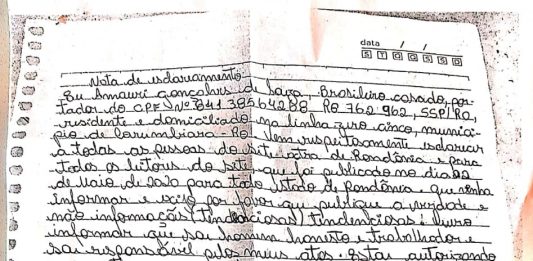 data / /
S T Q Q S S D
Nota de esclarecimento
Eu Amauri Gonçalves de Souza, Brasileiro casado, por-
tador do CPF Nº 841 385 642 88, RG 762 962, SSP/RO,
residente e domiciliado na linha zero cinco, municí-
pio de Corumbiara-RO. Vem respeitosamente esclarecer
à todas as pessoas do site extra de Rondônia e para
todos os leitores do site que foi publicado no dia 22
de Maio de 2020 para todo estado de Rondônia, que venha
informar e exijo por favor que publique a verdade e
não informações (tendenciosas) tendenciosas! Quero
informar que sou homem honesto e trabalhador e
sou responsável pelos meus atos. Estou autorizando